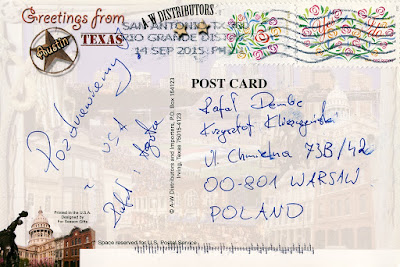 Greetings from
Austin
TEXAS
A-W DISTRIBUTORS
SAN ANTONIO TX 780
RIO GRANDE DISTRICT
14 SEP 2015 PM
POST CARD
Pozdrawiamy
z USA
Rafał
Krzysztof
Ul. Chmielna 73B/42
00-801 WARSAW
POLAND
© A-W Distributors and Importers, P.O. Box 154123
Irving, Texas 75015-4123
Printed in the U.S.A.
Designed by
Space reserved for U.S. Postal Service